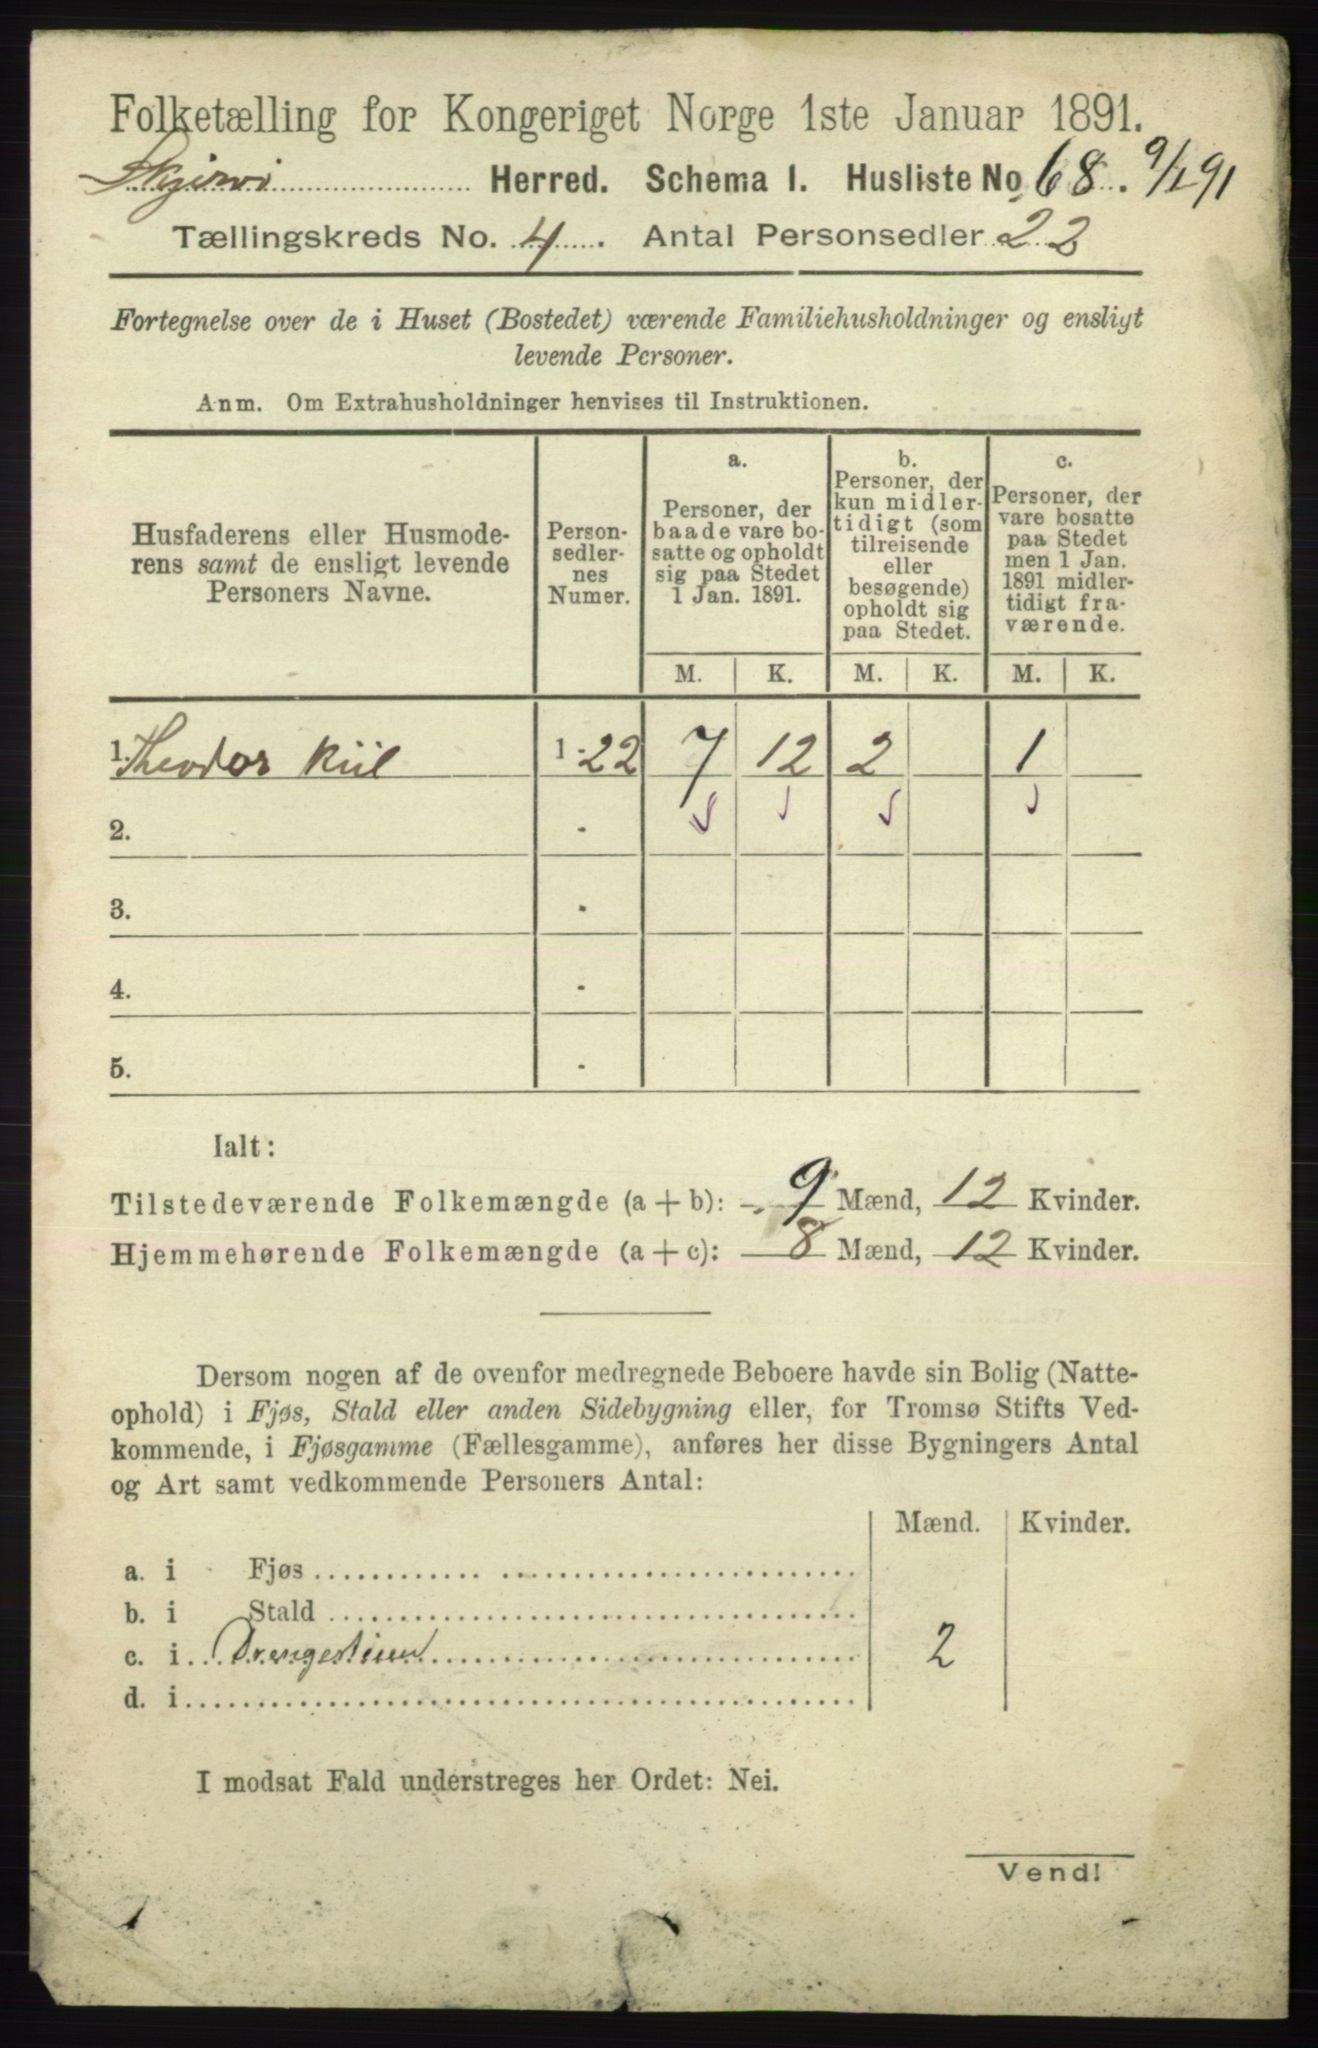 Folketælling for Kongeriget Norge 1ste Januar 1891.
Skjervø Herred. Schema 1. Husliste No 68. 9/1 91
Tællingskreds No. 4. Antal Personsedler 22
Fortegnelse over de i Huset (Bostedet) værende Familiehusholdninger og ensligt
levende Personer.
Anm. Om Extrahusholdninger henvises til Instruktionen.
Husfaderens eller Husmode-
rens samt de ensligt levende
Personers Navne.
Person-
sedler-
nes
Numer.
a.
Personer, der
baade vare bo-
satte og opholdt
sig paa Stedet
1 Jan. 1891.
b.
Personer, der
kun midler-
tidigt (som
tilreisende
eller
besøgende)
opholdt sig
paa Stedet.
c.
Personer, der
vare bosatte
paa Stedet
men 1 Jan.
1891 midler-
tidigt fra-
værende.
M. K. M. K. M. K.
1. Theodor Kiil 1-22 7 12 2 1
2. -
3. -
4. -
5. -
Ialt:
Tilstedeværende Folkemængde (a + b): 9 Mænd, 12 Kvinder.
Hjemmehørende Folkemængde (a + c): 8 Mænd, 12 Kvinder.
Dersom nogen af de ovenfor medregnede Beboere havde sin Bolig (Natte-
ophold) i Fjøs, Stald eller anden Sidebygning eller, for Tromsø Stifts Ved-
kommende, i Fjøsgamme (Fællesgamme), anføres her disse Bygningers Antal
og Art samt vedkommende Personers Antal:
Mænd. Kvinder.
a. i Fjøs
b. i Stald
c. i Drengestuen 2
d. i
I modsat Fald understreges her Ordet: Nei.
Vend!